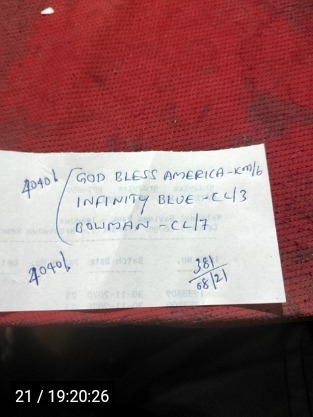 4040/.
GOD BLESS AMERICA - KM/6
INFINITY BLUE - CL/3
BOWMAN - CL/7
4040/.
381
68/21
21 / 19:20:26